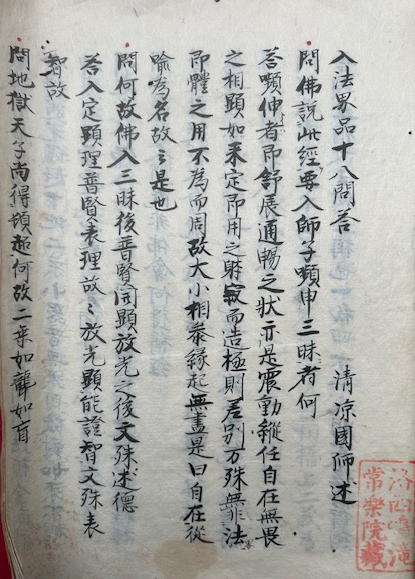 入法界品十八問答　清凉國師述
問佛說此經要入師子嚬申三昧者何
答嚬伸者即舒展通暢之狀亦是震動縱任自在無畏
之相顯如来定即用之躰寂而造極則差別万殊無非法
即體之用不為而周故大小相叅緣起無盡是曰自在從
喻為名故々是也
問何故佛入三昧後普賢開顯放光之後文殊述德
答入定顯理普賢表理故々放光顯能證智文殊表
智故
問地獄天子尚得頓超何故二乗如聾如盲
洛西鳴滝
常樂院藏